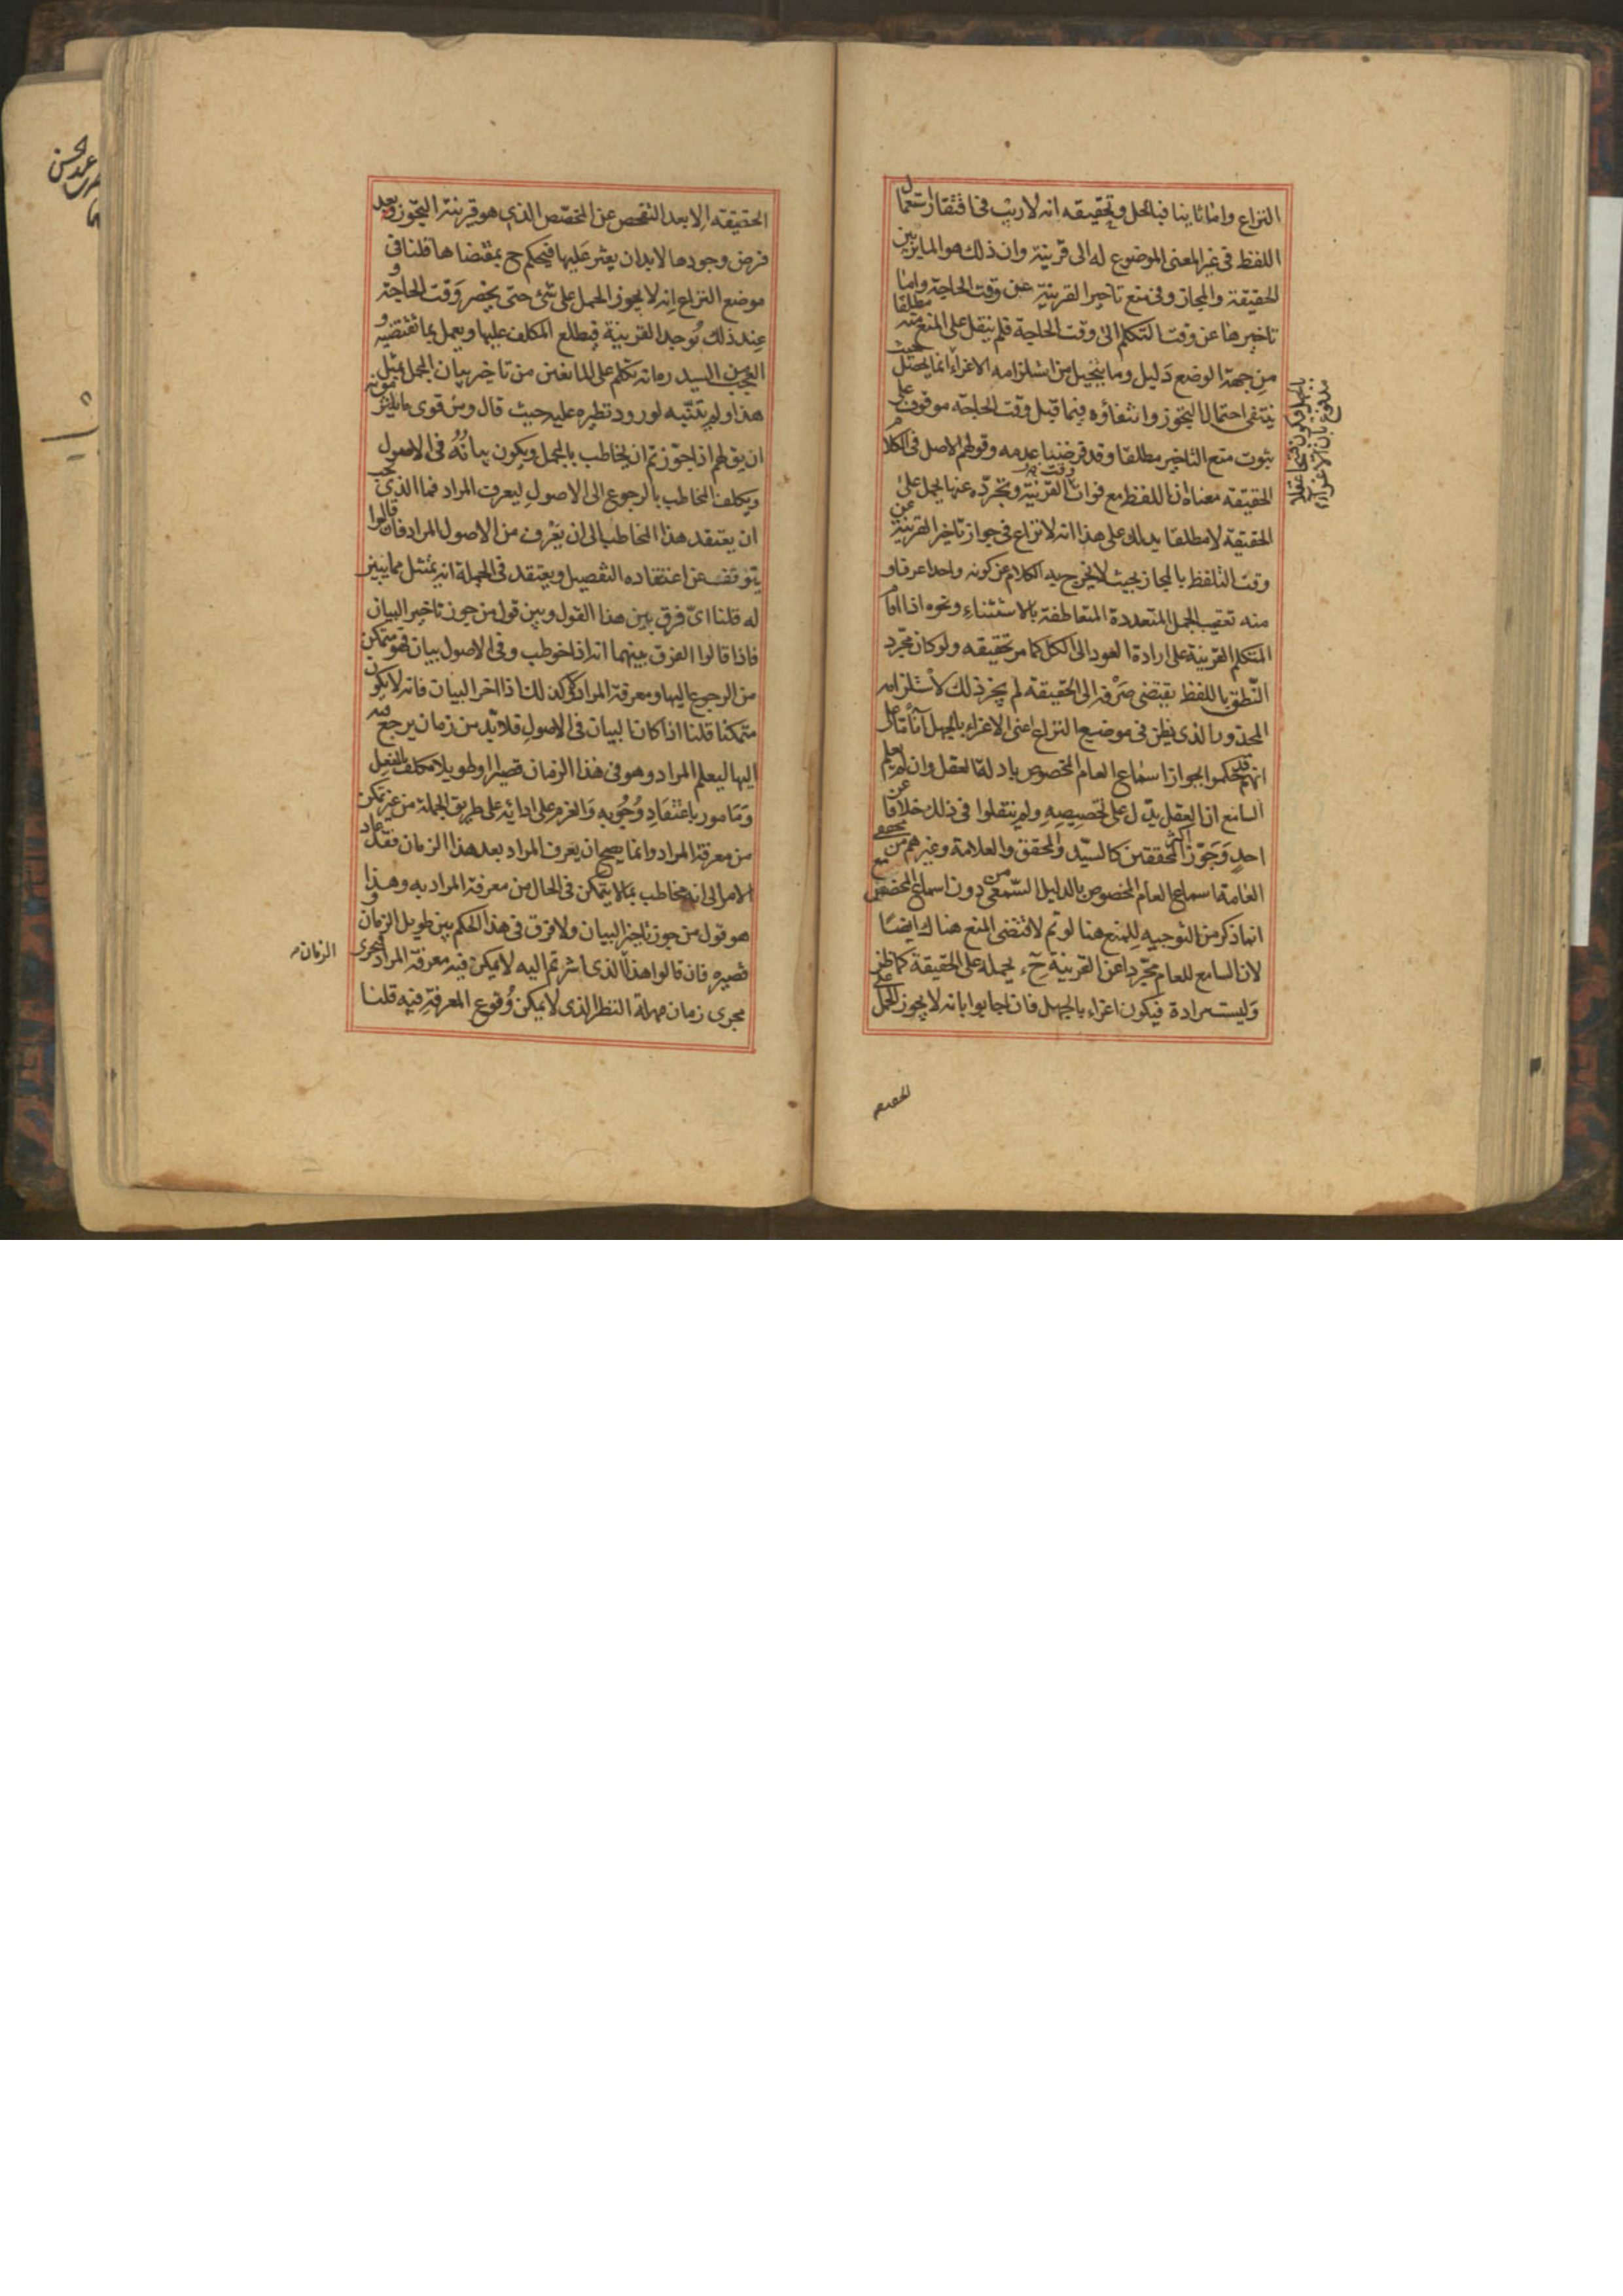 النزاع واما ثانيا فبالحل وتحقيقه انه لا ريب في افتقار استعمال
اللفظ في غير المعنى الموضوع له الى قرينة وان ذلك هو المايز بين
الحقيقة والمجاز وفي منع تاخير القرينة عن وقت الحاجة واما
تاخيرها عن وقت التكلم الى وقت الحاجة فلم ينقل على المنع منه مطلقا
من جهة الوضع دليل وما يتخيل من استلزامه الاغراء انما يحصل حيث
ينتفي احتمال التجوز وانتفاؤه فيما قبل وقت الحاجة موقوف على
ثبوت منع التاخير مطلقا وقد فرضنا عدمه وقولهم الاصل في الكلام
الحقيقة معناه ان اللفظ مع فوات وقت القرينة وتجرده عنها يحمل على
الحقيقة لا مطلقا يدلك على هذا انه لا نزاع في جواز تاخير القرينة عن
وقت التلفظ بالمجاز بحيث لا يخرج به الكلام عن كونه واحدا عرفا و
منه تعقيب الجمل المتعددة المتعاطفة بالاستثناء ونحوه اذا اقام
المتكلم القرينة على ارادة العود الى الكل كما مر تحقيقه ولو كان مجرد
النطق باللفظ يقتضي صرفه الى الحقيقة لم يجز ذلك لاستلزامه
المحذور الذي يظن في موضع النزاع اعني الاغراء بالجهل آنا ما على
انهم قد حكموا بجواز اسماع العام المخصوص بادلة العقل وان لم يعلم
السامع ان العقل يدل على تخصيصه ولم ينقلوا في ذلك خلافا عن
احد وجوز اكثر المحققين كالسيد والمحقق والعلامة وغيرهم من محققي
العامة اسماع العام المخصوص بالدليل السمعي من دون اسماع المخصص مع
ان ما ذكر من التوجيه للمنع هنا لو تم لاقتضى المنع هناك ايضا
لان السامع للعام مجردا عن القرينة ح يحمله على الحقيقة كما ظن
وليست مرادة فيكون اغراء بالجهل فان اجابوا بانه لا يجوز الحمل على
بالجهل فيكون قبيحا عقلا
مدفوع بان الاغراء
الحقيقة الا بعد التفحص عن المخصص الذي هو قرينة التجوز وبعد
فرض وجودها لا بد ان يعثر عليها فيحكم ح بمقتضاها قلنا في
موضع النزاع انه لا يجوز الحمل على شئ حتى يحضر وقت الحاجة و
عند ذلك توجد القرينة فيطلع المكلف عليها ويعمل بما تقتضيه و
العجب من السيد ره انه تكلم على المانعين من تاخير بيان المجمل بمثل
هذا ولم يتنبه لورود نظيره عليه حيث قال ومن قوي ما يلزمونه
ان يق لهم اذا جوزتم ان يخاطب بالمجمل ويكون بيانه في الاصول
ويكلف المخاطب بالرجوع الى الاصول ليعرف المراد فما الذي يجب
ان يعتقد هذا المخاطب الى ان يعرف من الاصول المراد فان قالوا
يتوقف عن اعتقاده التفصيل ويعتقد في الجملة انه يمتثل ما يبين
له قلنا اي فرق بين هذا القول وبين قول من جوز تاخير البيان
فاذا قالوا الفرق بينهما انه اذا خوطب وفي الاصول بيان فهو متمكن
من الرجوع اليها ومعرفة المراد ولا كذلك اذا اخر البيان فانه لا يكون
متمكنا قلنا اذا كان البيان في الاصول فلا بد من زمان يرجع فيه
اليها ليعلم المراد وهو في هذا الزمان قصيرا او طويلا مكلف بالفعل
ومامور باعتقاد وجوبه والعزم على ادائه على طريق الجملة من غير تمكن
من معرفة المراد وانما يصح ان يعرف المراد بعد هذا الزمان فقد عاد
الامر الى انه مخاطب بما لا يتمكن في الحال من معرفة المراد به وهذا
هو قول من جوز تاخير البيان ولا فرق في هذا الحكم بين طويل الزمان و
قصيره فان قالوا هذا الذي اشرتم اليه لا يمكن فيه معرفة المراد فيجري
مجرى زمان مهلة النظر الذي لا يمكن وقوع المعرفة فيه قلنا
الزمان